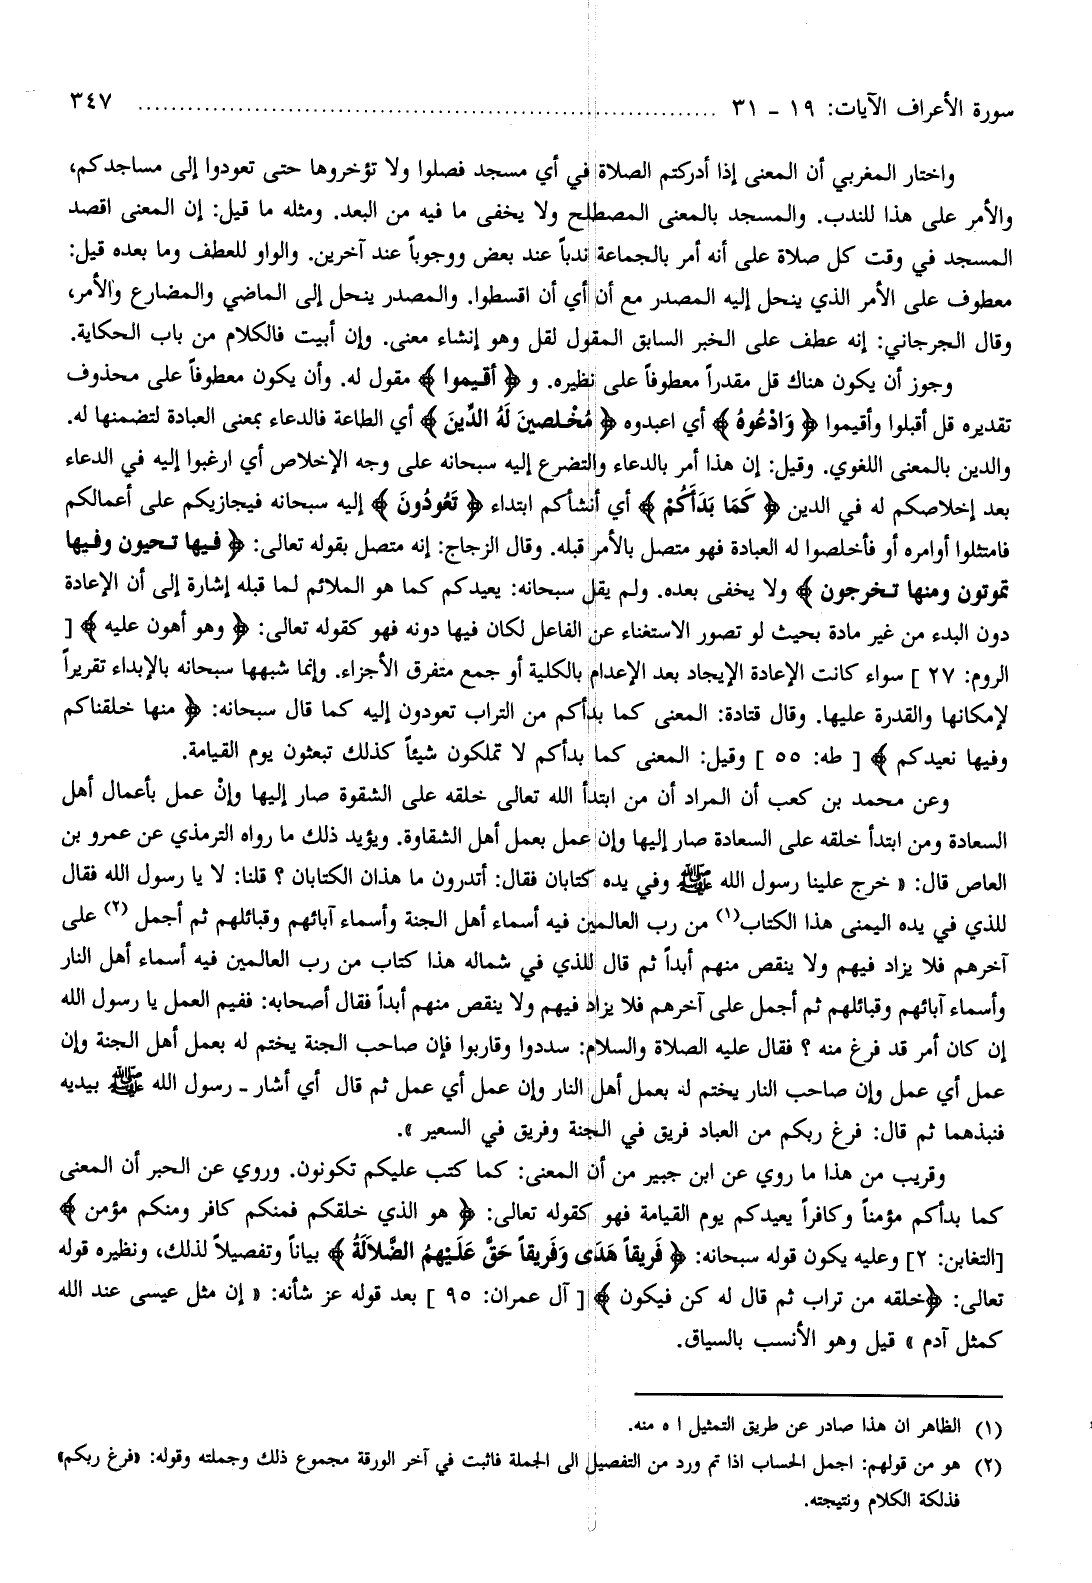 سورة الأعراف الآيات: ١٩ - ٣١ ........................................................ ٣٤٧
واختار المغربي أن المعنى إذا أدركتم الصلاة في أي مسجد فصلوا ولا تؤخروها حتى تعودوا إلى مساجدكم،
والأمر على هذا للندب. والمسجد بالمعنى المصطلح ولا يخفى ما فيه من البعد. ومثله ما قيل: إن المعنى اقصد
المسجد في وقت كل صلاة على أنه أمر بالجماعة ندباً عند بعض ووجوباً عند آخرين. والواو للعطف وما بعده قيل:
معطوف على الأمر الذي ينحل إليه المصدر مع أن أي أن اقسطوا. والمصدر ينحل إلى الماضي والمضارع والأمر،
وقال الجرجاني: إنه عطف على الخبر السابق المقول لقل وهو إنشاء معنى. وإن أبيت فالكلام من باب الحكاية.
وجوز أن يكون هناك قل مقدراً معطوفاً على نظيره. و ﴿ أقيموا ﴾ مقول له. وأن يكون معطوفاً على محذوف
تقديره قل أقبلوا وأقيموا ﴿ وَادْعُوهُ ﴾ أي اعبدوه ﴿ مُخْلصينَ لَهُ الدِّينَ ﴾ أي الطاعة فالدعاء بمعنى العبادة لتضمنها له.
والدين بالمعنى اللغوي. وقيل: إن هذا أمر بالدعاء والتضرع إليه سبحانه على وجه الإخلاص أي ارغبوا إليه في الدعاء
بعد إخلاصكم له في الدين ﴿ كَمَا بَدَأَكُمْ ﴾ أي أنشأكم ابتداء ﴿ تَعُودُونَ ﴾ إليه سبحانه فيجازيكم على أعمالكم
فامتثلوا أوامره أو فأخلصوا له العبادة فهو متصل بالأمر قبله. وقال الزجاج: إنه متصل بقوله تعالى: ﴿ فيها تحيون وفيها
تموتون ومنها تخرجون ﴾ ولا يخفى بعده. ولم يقل سبحانه: يعيدكم كما هو الملائم لما قبله إشارة إلى أن الإعادة
دون البدء من غير مادة بحيث لو تصور الاستغناء عن الفاعل لكان فيها دونه فهو كقوله تعالى: ﴿ وهو أهون عليه ﴾ [
الروم: ٢٧ ] سواء كانت الإعادة الإيجاد بعد الإعدام بالكلية أو جمع متفرق الأجزاء. وإنما شبهها سبحانه بالإبداء تقريراً
لإمكانها والقدرة عليها. وقال قتادة: المعنى كما بدأكم من التراب تعودون إليه كما قال سبحانه: ﴿ منها خلقناكم
وفيها نعيدكم ﴾ [ طه: ٥٥ ] وقيل: المعنى كما بدأكم لا تملكون شيئاً كذلك تبعثون يوم القيامة.
وعن محمد بن كعب أن المراد أن من ابتدأ الله تعالى خلقه على الشقوة صار إليها وإنْ عمل بأعمال أهل
السعادة ومن ابتدأ خلقه على السعادة صار إليها وإن عمل بعمل أهل الشقاوة. ويؤيد ذلك ما رواه الترمذي عن عمرو بن
العاص قال: « خرج علينا رسول الله ﷺ وفي يده كتابان فقال: أتدرون ما هذان الكتابان ؟ قلنا: لا يا رسول الله فقال
للذي في يده اليمنى هذا الكتاب(١) من رب العالمين فيه أسماء أهل الجنة وأسماء آبائهم وقبائلهم ثم أجمل (٢) على
آخرهم فلا يزاد فيهم ولا ينقص منهم أبداً ثم قال للذي في شماله هذا كتاب من رب العالمين فيه أسماء أهل النار
وأسماء آبائهم وقبائلهم ثم أجمل على آخرهم فلا يزاد فيهم ولا ينقص منهم أبداً فقال أصحابه: ففيم العمل يا رسول الله
إن كان أمر قد فرغ منه ؟ فقال عليه الصلاة والسلام: سددوا وقاربوا فإن صاحب الجنة يختم له بعمل أهل الجنة وإن
عمل أي عمل وإن صاحب النار يختم له بعمل أهل النار وإن عمل أي عمل ثم قال أي أشار ـ رسول الله ﷺ بيديه
فنبذهما ثم قال: فرغ ربكم من العباد فريق في الجنة وفريق في السعير ».
وقريب من هذا ما روي عن ابن جبير من أن المعنى: كما كتب عليكم تكونون. وروي عن الحبر أن المعنى
كما بدأكم مؤمناً وكافراً يعيدكم يوم القيامة فهو كقوله تعالى: ﴿ هو الذي خلقكم فمنكم كافر ومنكم مؤمن ﴾
[التغابن: ٢] وعليه يكون قوله سبحانه: ﴿ فَريقاً هَدَى وَفَريقاً حَقَّ عَلَيْهمُ الضَّلاَلَةُ ﴾ بياناً وتفصيلاً لذلك، ونظيره قوله
تعالى: ﴿خلقه من تراب ثم قال له كن فيكون ﴾ [ آل عمران: ٩٥ ] بعد قوله عز شأنه: « إن مثل عيسى عند الله
كمثل آدم » قيل وهو الأنسب بالسياق.
(١) الظاهر ان هذا صادر عن طريق التمثيل ا ه منه.
(٢) هو من قولهم: اجمل الحساب اذا تم ورد من التفصيل الى الجملة فاثبت في آخر الورقة مجموع ذلك وجملته وقوله: «فرغ ربكم»
فذلكة الكلام ونتيجته.